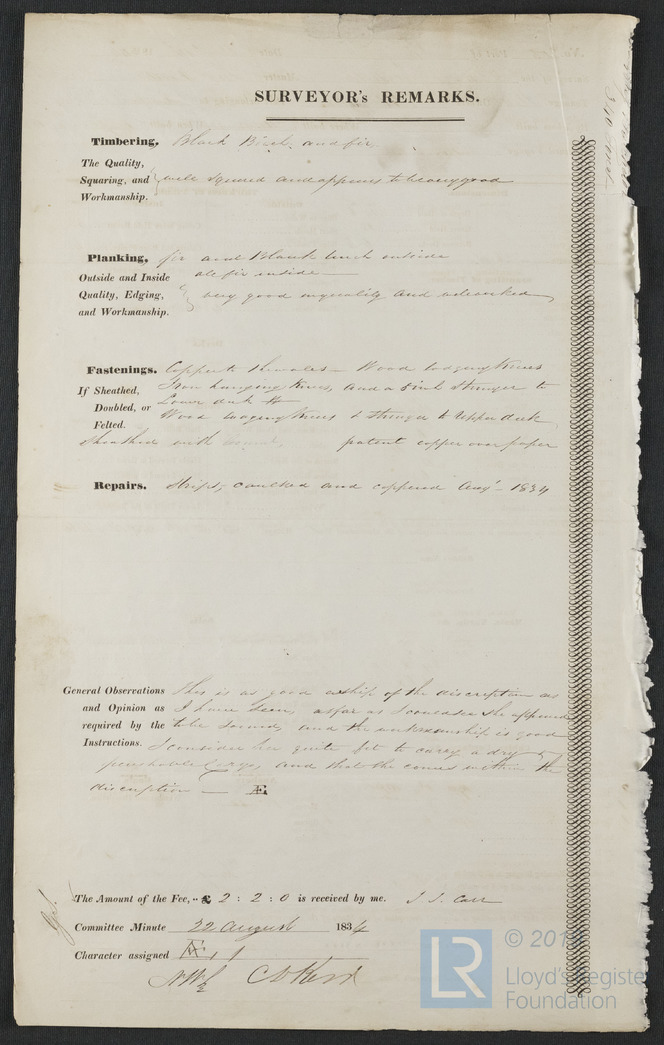 SURVEYOR's REMARKS.
Timbering, Black Birch and fir
The Quality,
Squaring, and well squared and appears to be very good
Workmanship.
Planking, fir and Black birch outside
Outside and Inside all fir inside
Quality, Edging, very good in quality and
and Workmanship.
Fastenings. Copper to the wales - Wood lodging Knees
If Sheathed, Iron hanging Knees, and a Stringer to
Doubled, or Lower deck
Felted. Wood lodging Knees & Stringer to Upper deck
Sheathed with patent copper over paper
Repairs. Stript, caulked and coppered Augt - 1834
General Observations This is as good a ship of the discription as
and Opinion as I have seen, as far as I could see she appeared
required by the to be sound, and the workmanship is good
Instructions. I consider her quite fit to carry a dry &
perishable Cargo, and that she comes within the
discription — Æ
The Amount of the Fee, £ 2 : 2 : 0 is received by me.
Committee Minute 22 August 1834
Character assigned Æ 1
LR © Lloyd's Register
Foundation